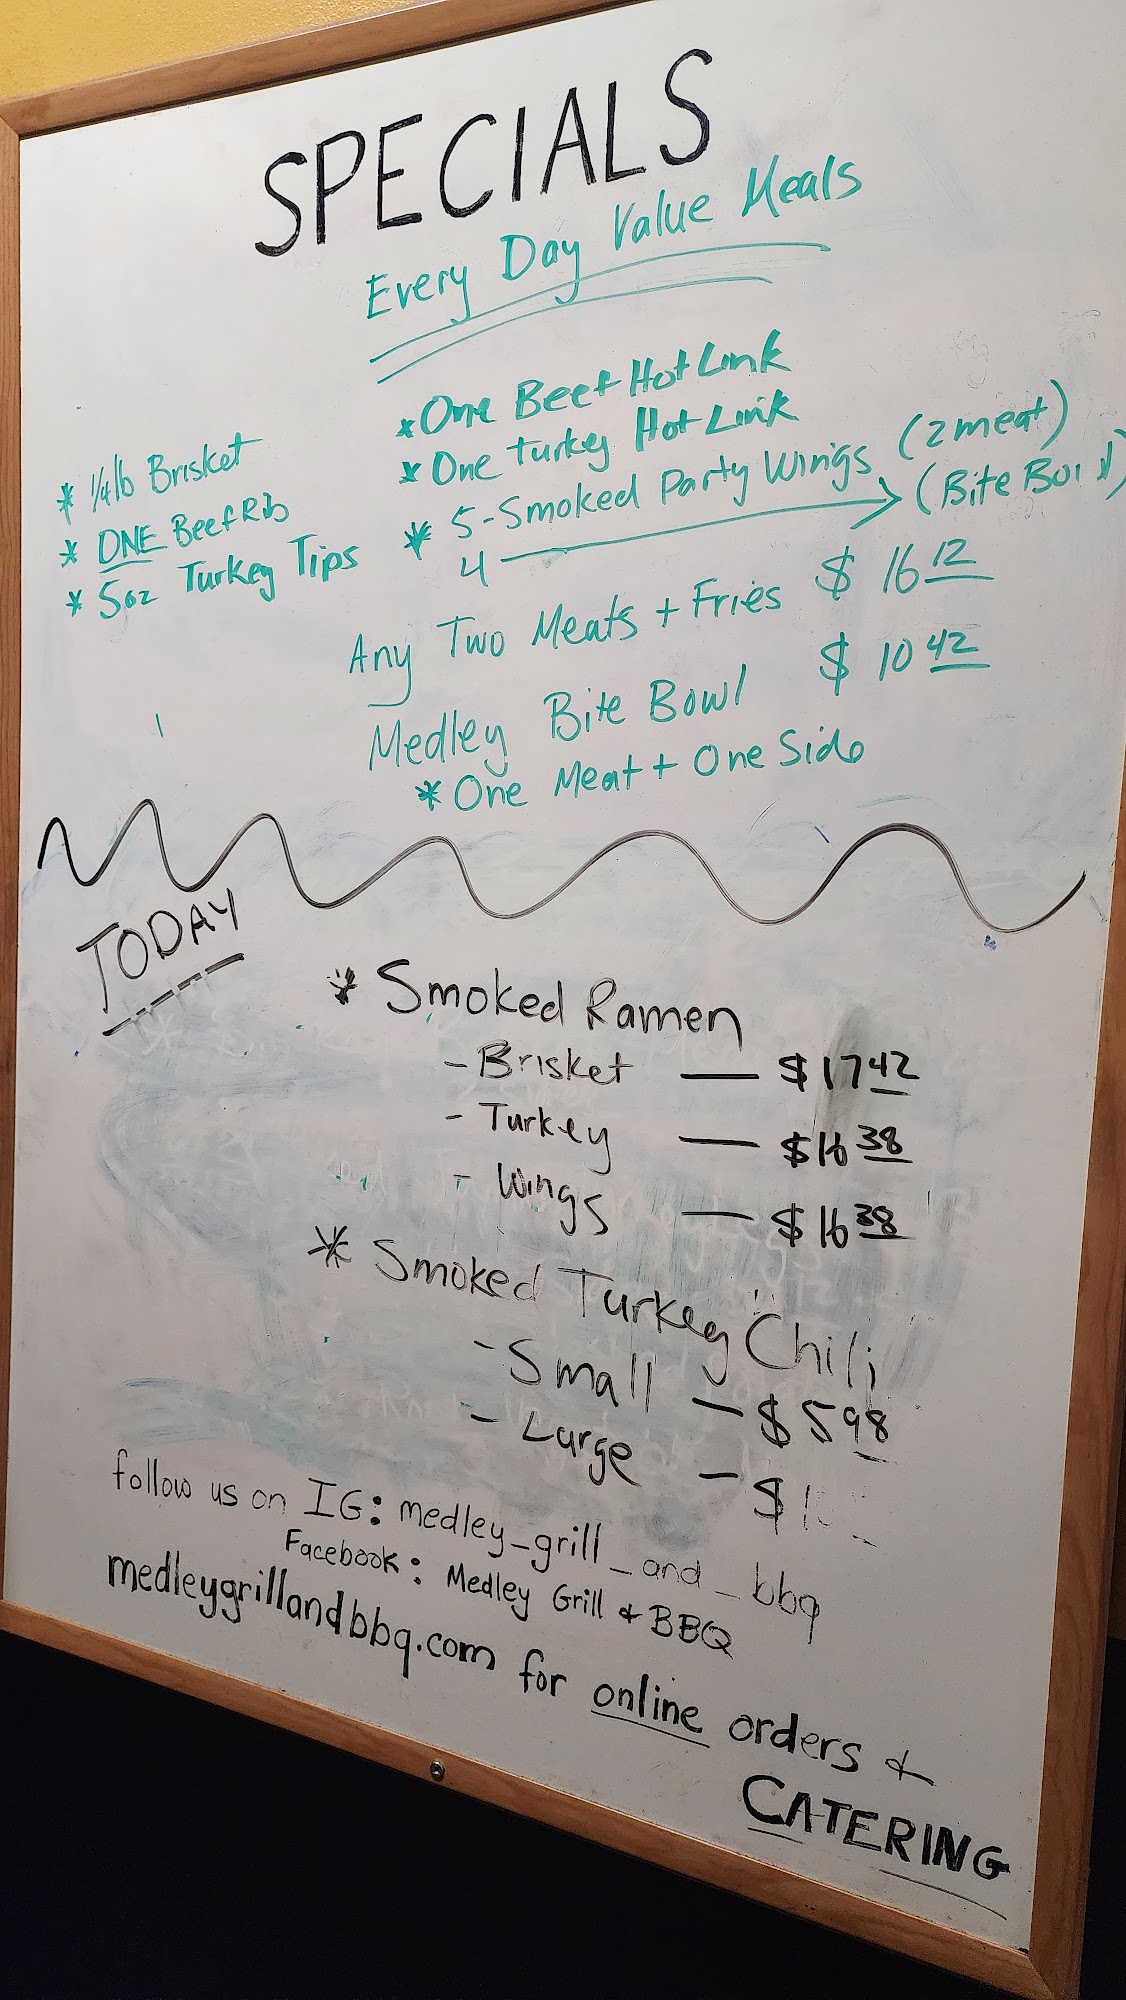 SPECIALS
Every Day Value Meals
* 1/4lb Brisket
* ONE Beef Rib
* 5oz Turkey Tips
* One Beef Hot Link
* One Turkey Hot Link
* 5-Smoked Party Wings (2 meat)
4 → (Bite Bowl)
Any Two Meats + Fries $16 12
Medley Bite Bowl $10 42
* One Meat + One Side
TODAY
* Smoked Ramen
- Brisket — $17 42
- Turkey — $16 38
- Wings — $16 38
* Smoked Turkey Chili
- Small — $5 98
- Large — $
follow us on IG: medley_grill_and_bbq
Facebook: Medley Grill & BBQ
medleygrillandbbq.com for online orders &
CATERING